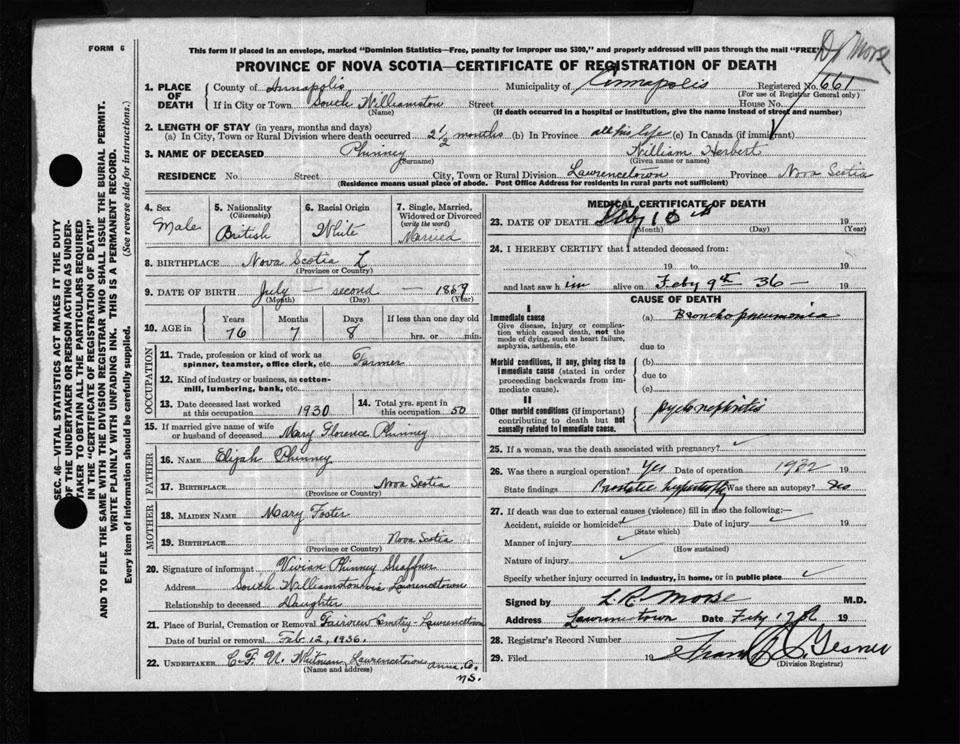 FORM 6
This form if placed in an envelope, marked "Dominion Statistics—Free, penalty for improper use $300," and properly addressed will pass through the mail "FREE"
Dr Morse
PROVINCE OF NOVA SCOTIA—CERTIFICATE OF REGISTRATION OF DEATH
1. PLACE OF DEATH County of Annapolis Municipality of Annapolis Registered No. 661
(For use of Registrar General only)
If in City or Town South Williamston Street House No.
(Name) (If death occurred in a hospital or institution, give the name instead of street and number)
2. LENGTH OF STAY (in years, months and days)
(a) In City, Town or Rural Division where death occurred 2½ months (b) In Province all his life (c) In Canada (if immigrant)
3. NAME OF DECEASED Phinney William Herbert
(Surname) (Given name or names)
RESIDENCE No. Street City, Town or Rural Division Lawrencetown Province Nova Scotia
(Residence means usual place of abode. Post Office Address for residents in rural parts not sufficient)
4. Sex Male
5. Nationality (Citizenship) British
6. Racial Origin White
7. Single, Married, Widowed or Divorced (write the word) Married
8. BIRTHPLACE Nova Scotia
(Province or Country)
9. DATE OF BIRTH July — second — 1859
(Month) (Day) (Year)
10. AGE in Years Months Days If less than one day old
76 7 8 hrs. or min.
OCCUPATION
11. Trade, profession or kind of work as spinner, teamster, office clerk, etc. Farmer
12. Kind of industry or business, as cotton-mill, lumbering, bank, etc.
13. Date deceased last worked at this occupation 1930
14. Total yrs. spent in this occupation 50
15. If married give name of wife or husband of deceased Mary Florence Phinney
FATHER
16. NAME Elijah Phinney
17. BIRTHPLACE Nova Scotia
(Province or Country)
MOTHER
18. MAIDEN NAME Mary Foster
19. BIRTHPLACE Nova Scotia
(Province or Country)
20. Signature of informant Vivian Phinney Shaffner
Address South Williamston via Lawrencetown
Relationship to deceased Daughter
21. Place of Burial, Cremation or Removal Fairview Cemetry - Lawrencetown
Date of burial or removal Feb. 12, 1936.
22. UNDERTAKER Whitman, Lawrencetown Anna. Co. N.S.
(Name and address)
MEDICAL CERTIFICATE OF DEATH
23. DATE OF DEATH Feby 10th 19
(Month) (Day) (Year)
24. I HEREBY CERTIFY that I attended deceased from:
19 to 19
and last saw him alive on Feby 9th 36 — 19
CAUSE OF DEATH
I
Immediate cause (a) Broncho pneumonia
Give disease, injury or complication which caused death, not the mode of dying, such as heart failure, asphyxia, asthenia, etc. due to
Morbid conditions, if any, giving rise to immediate cause (stated in order proceeding backwards from immediate cause). (b)
due to
(c)
II
Other morbid conditions (if important) contributing to death but not causally related to immediate cause. Pyelonephritis
25. If a woman, was the death associated with pregnancy?
26. Was there a surgical operation? Yes Date of operation 1932 19
State findings Prostatic Was there an autopsy?
27. If death was due to external causes (violence) fill in also the following:—
Accident, suicide or homicide? Date of injury 19
(State which)
Manner of injury
(How sustained)
Nature of injury
Specify whether injury occurred in industry, in home, or in public place
Signed by L. R. Morse M.D.
Address Lawrencetown Date Feby 19
28. Registrar's Record Number
29. Filed 19 Frank Gesner
(Division Registrar)
SEC. 46—VITAL STATISTICS ACT MAKES IT THE DUTY
OF THE UNDERTAKER OR PERSON ACTING AS UNDER-
TAKER TO OBTAIN ALL THE PARTICULARS REQUIRED
IN THE "CERTIFICATE OF REGISTRATION OF DEATH"
AND TO FILE THE SAME WITH THE DIVISION REGISTRAR WHO SHALL ISSUE THE BURIAL PERMIT.
WRITE PLAINLY WITH UNFADING INK. THIS IS A PERMANENT RECORD.
Every item of Information should be carefully supplied. (See reverse side for instructions.)